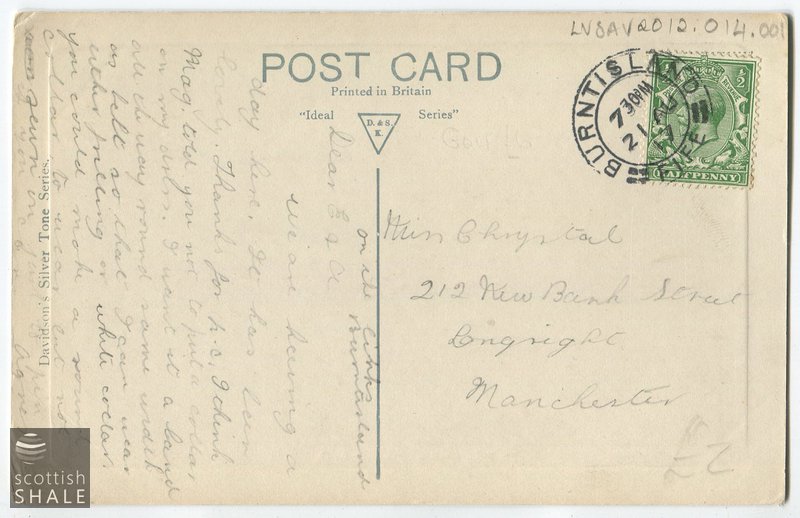 LVSAV2012.014.001
POST CARD
Printed in Britain
"Ideal D. & S. K. Series"
BURNTISLAND
7 30 PM
21
FIFE
HALFPENNY
Miss Chrystal
212 New Bank Street
Longsight
Manchester
£2
on the links
Burntisland
Dear E & A
we are having a
day here. It has been
lovely. Thanks for p.c. I think
Mag told you not to put a collar
on my dress. I want it a band
all the way round same width
as belt so that I can wear
either frilling or white collar.
you could make a
collar to wear but not
sewn
Davidson's Silver Tone Series.
scottish
SHALE